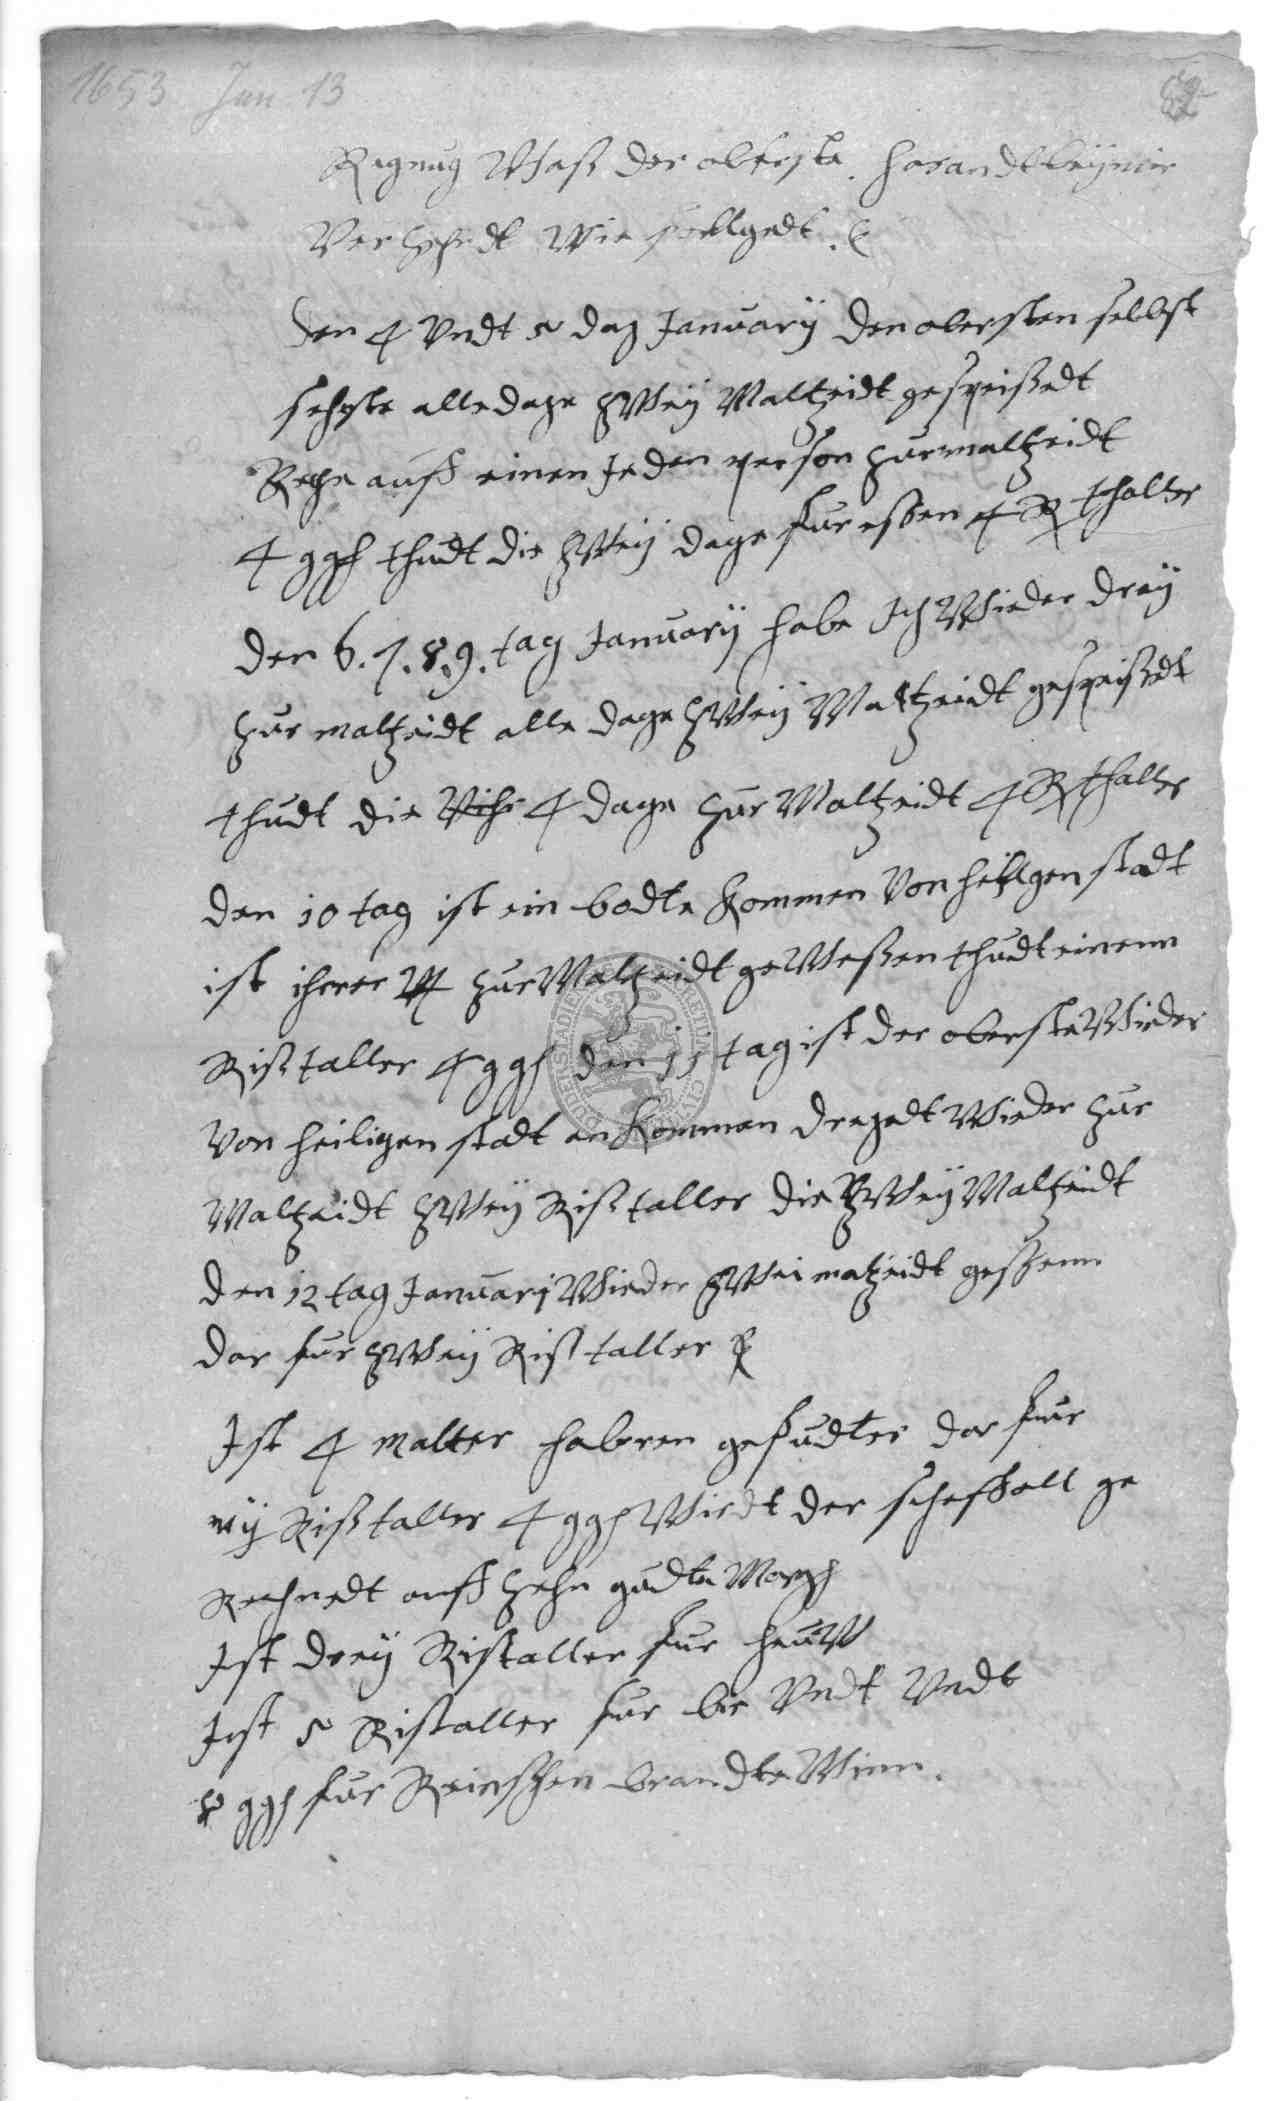 1653 Jan 13
Regnug Waß der oberste
Verzehrdt Wie follgedt
den 4 Vndt 5 dag January den obersten selbst
sehste alle dage zWeÿ Maltzeidt gespeißedt
Rege auff einen Jeden person zur maltzeidt
4 ggh thudt die zWeÿ dage fur eßen 4 R thaller
den 6. 7. 8. 9. tag Januarÿ habe Jch Wieder dreÿ
zur maltzeidt alle dage zWeÿ Maltzeidt gespeißedt
thudt die 4 dage zur Maltzeidt 4 R thaller
den 10 tag ist ein bodte kommen Von heillgenstadt
ist ihrer zur Maltzeidt geWeßen thudt einenn
Rißtaller 4 ggh den 11 tag ist der oberste Wieder
Von heiligenstadt an kommen dregedt Wieder zur
Maltzeidt zWeÿ Rißtaller die zWeÿ Maltzeidt
den 12 tag Januarj Wieder zWei matzeidt geßenn
dar fur zWeÿ Rißtaller
Jst 4 malter haberen gefudter dar fur
Rißtaller 4 ggh Wirdt der scheffell ge
Rechnedt auff zehn gudte Margh
Jst dreÿ Rißtaller fur heuW
Jst 5 Rißtaller fur bir Vndt Vndt
8 ggh fur Reinschen brandte Winn.